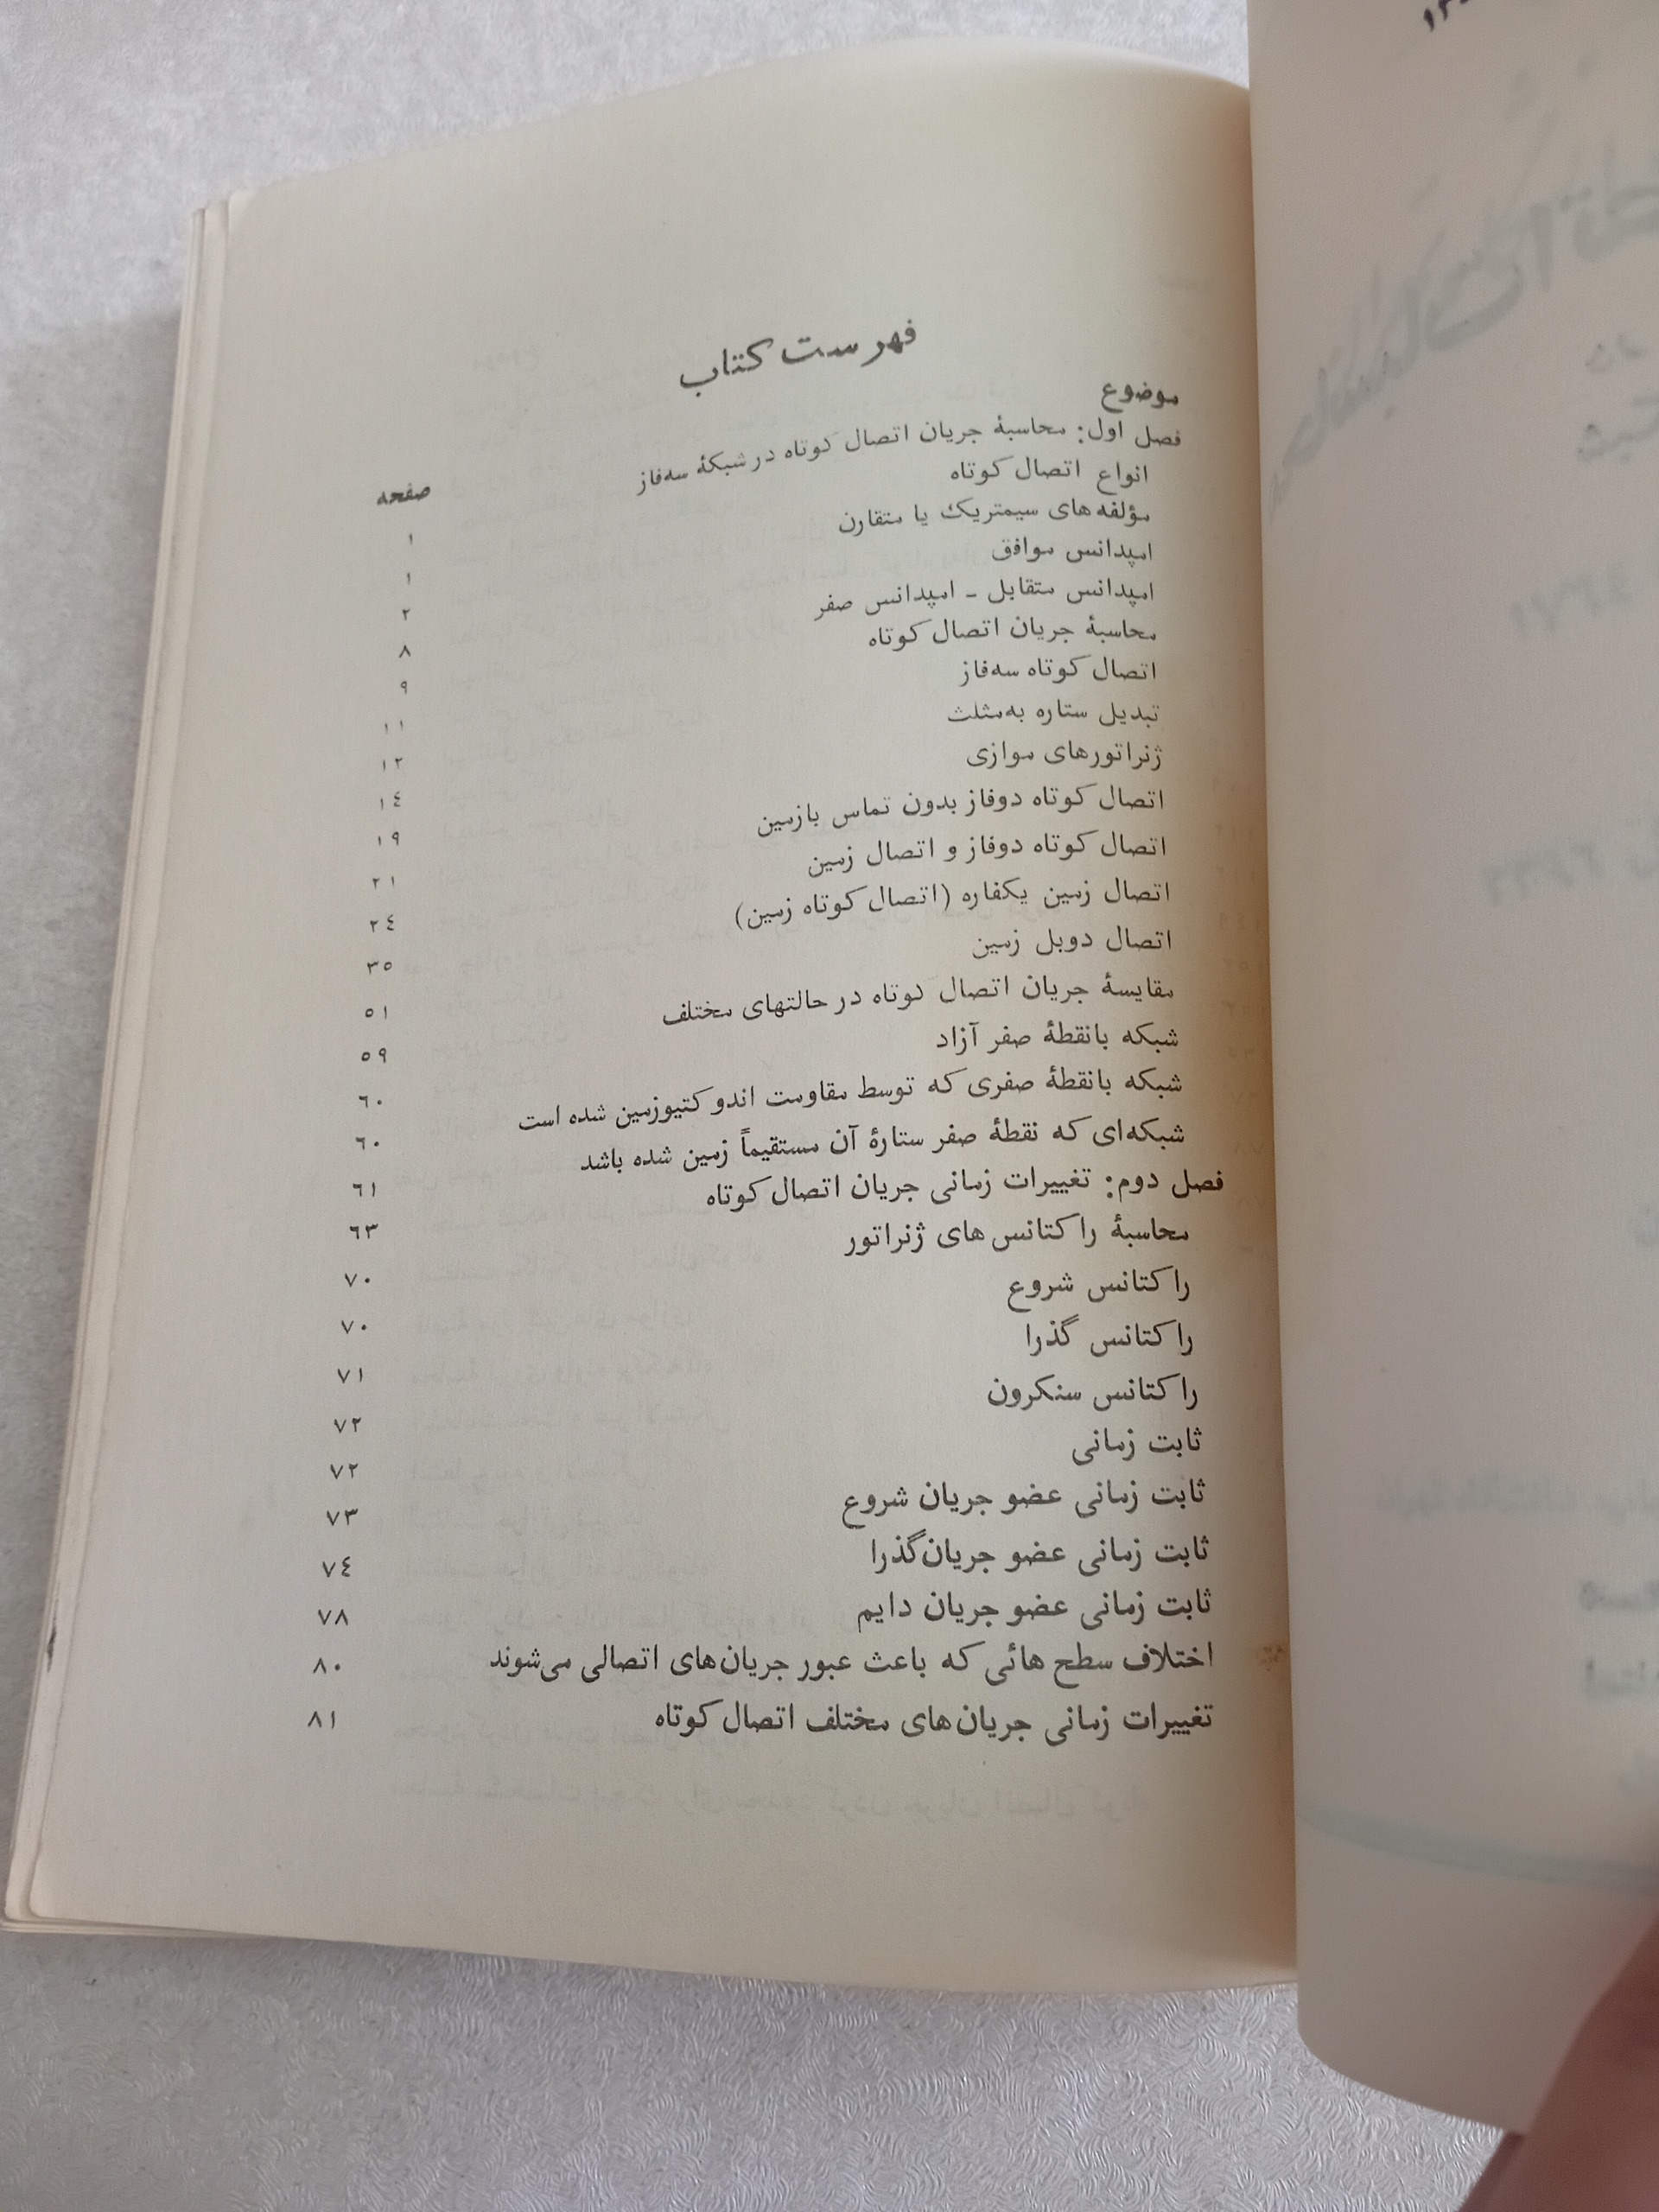 فهرست کتاب
موضوع صفحه
فصل اول: محاسبهٔ جریان اتصال کوتاه در شبکهٔ سه‌فاز ۱
انواع اتصال کوتاه ۱
مؤلفه های سیمتریک یا متقارن ۲
امپدانس موافق ۸
امپدانس متقابل ـ امپدانس صفر ۹
محاسبهٔ جریان اتصال کوتاه ۱۱
اتصال کوتاه سه‌فاز ۱۲
تبدیل ستاره به‌مثلث ۱٤
ژنراتورهای موازی ۱۹
اتصال کوتاه دوفاز بدون تماس بازمین ۲۱
اتصال کوتاه دوفاز و اتصال زمین ۲٤
اتصال زمین یکفاره (اتصال کوتاه زمین) ۳٥
اتصال دوبل زمین ٥۱
مقایسهٔ جریان اتصال کوتاه در حالتهای مختلف ٥۹
شبکه بانقطهٔ صفر آزاد ٦۰
شبکه بانقطهٔ صفری که توسط مقاومت اندوکتیوزمین شده است ٦۰
شبکه‌ای که نقطهٔ صفر ستارهٔ آن مستقیماً زمین شده باشد ٦۱
فصل دوم: تغییرات زمانی جریان اتصال کوتاه ٦۳
محاسبهٔ راکتانس های ژنراتور ۷۰
راکتانس شروع ۷۰
راکتانس گذرا ۷۱
راکتانس سنکرون ۷۲
ثابت زمانی ۷۲
ثابت زمانی عضو جریان شروع ۷۳
ثابت زمانی عضو جریان‌گذرا ۷٤
ثابت زمانی عضو جریان دایم ۷۸
اختلاف سطح هائی که باعث عبور جریان‌های اتصالی می‌شوند ۸۰
تغییرات زمانی جریان‌های مختلف اتصال کوتاه ۸۱